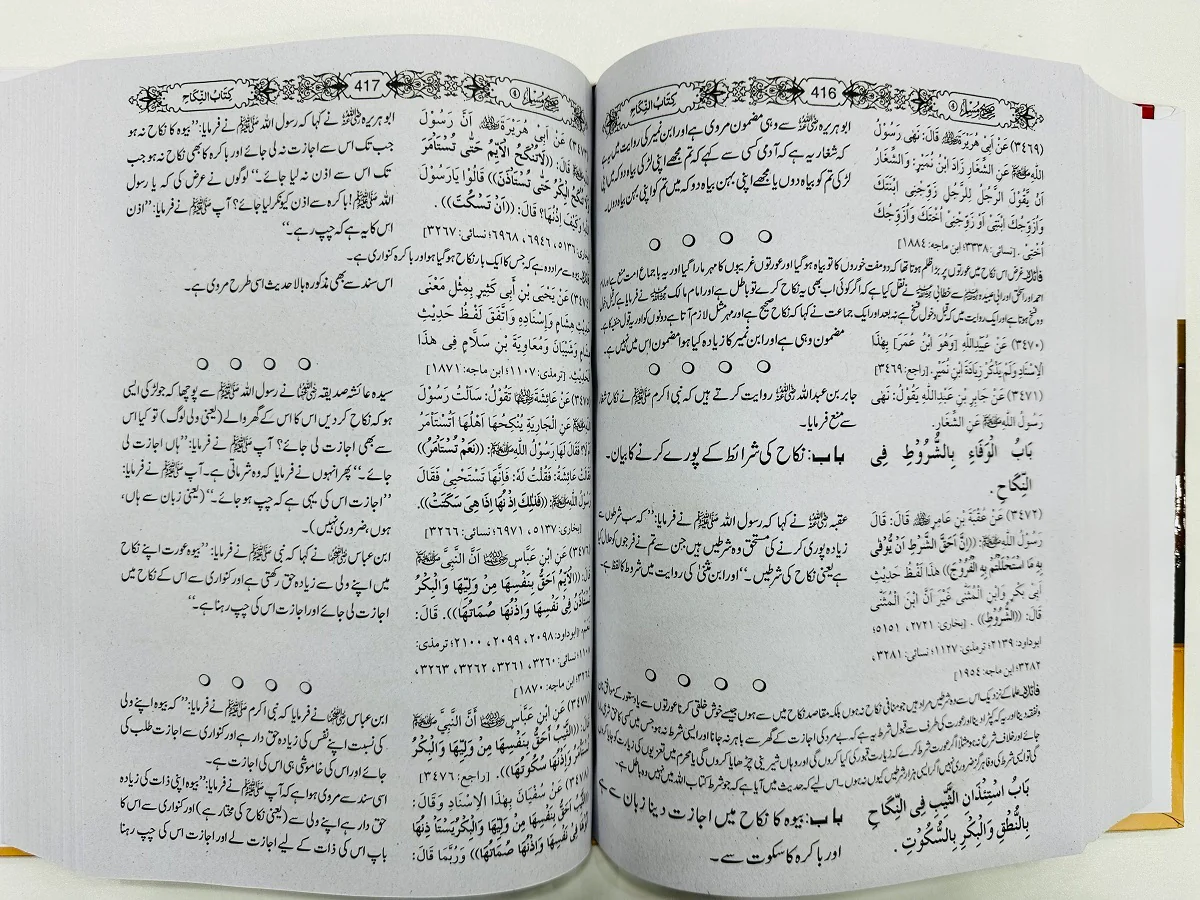 صحیح مسلم ④
416
كِتَابُ النِّكَاحِ
(٣٤٦٩) عَنْ أَبِي هُرَيْرَةَ ؓ قَالَ: نَهٰى رَسُوْلُ
اللّٰهِ ﷺ عَنِ الشِّغَارِ زَادَ ابْنُ نُمَيْرٍ: وَالشِّغَارُ
اَنْ يَّقُوْلَ الرَّجُلُ لِلرَّجُلِ زَوِّجْنِى ابْنَتَكَ
وَاُزَوِّجُكَ ابْنَتِىْ اَوْ زَوِّجْنِىْ اُخْتَكَ وَاُزَوِّجُكَ
اُخْتِىْ . [نسائى: ٣٣٣٨؛ ابن ماجه: ١٨٨٤]
ابو ہریرہ ؓ سے وہی مضمون مروی ہے اور ابن نمیر کی روایت میں یہ ہے
کہ شغار یہ ہے کہ آدمی کسی سے کہے کہ تم مجھے اپنی لڑکی بیاہ دو کہ میں اپنی
لڑکی تم کو بیاہ دوں یا مجھے اپنی بہن بیاہ دو کہ میں تم کو اپنی بہن بیاہ دوں۔
فائلا: غرض اس نکاح میں عورتوں پر بڑا ظلم ہوتا تھا کہ دو مفت خوروں کا تو بیاہ ہو گیا اور عورتوں غریبوں کا مہر مارا گیا اور یہ با جماع امت منع ہے
(٣٤٧٠) عَنْ عُبَيْدِاللّٰهِ [وَهُوَ ابْنُ عُمَرَ] بِهٰذَا
الْاِسْنَادِ وَلَمْ يَذْكُرْ زِيَادَةَ ابْنِ نُمَيْرٍ. [راجع: ٣٤٦٩]
مضمون وہی ہے اور ابن نمیر کا زیادہ کیا ہوا مضمون اس میں نہیں ہے۔
(٣٤٧١) عَنْ جَابِرِ بْنِ عَبْدِاللّٰهِ يَقُوْلُ: نَهٰى
رَسُوْلُ اللّٰهِ ﷺ عَنِ الشِّغَارِ.
جابر بن عبداللہ ؓ روایت کرتے ہیں کہ نبی اکرم ﷺ نے نکاح شغار
سے منع فرمایا۔
بَابُ الْوَفَاءِ بِالشُّرُوْطِ فِى
النِّكَاحِ .
باب: نکاح کی شرائط کے پورے کرنے کا بیان۔
(٣٤٧٢) عَنْ عُقْبَةَ بْنِ عَامِرٍ ؓ قَالَ: قَالَ
رَسُوْلُ اللّٰهِ ﷺ: ((اِنَّ اَحَقَّ الشَّرْطِ اَنْ يُّوْفٰى
بِهٖ مَا اسْتَحْلَلْتُمْ بِهِ الْفُرُوْجَ)) هٰذَا لَفْظُ حَدِيْثِ
اَبِىْ بَكْرٍ وَابْنِ الْمُثَنّٰى غَيْرَ اَنَّ ابْنَ الْمُثَنّٰى
قَالَ: ((الشُّرُوْطِ)) . [بخارى: ٢٧٢١، ٥١٥١؛
ابوداود: ٢١٣٩؛ ترمذى: ١١٢٧؛ نسائى: ٣٢٨١،
٣٢٨٢؛ ابن ماجه: ١٩٥٤]
عقبہ ؓ نے کہا کہ رسول اللہ ﷺ نے فرمایا: ’’کہ سب شرطوں سے
زیادہ پوری کرنے کی مستحق وہ شرطیں ہیں جن سے تم نے فرجوں کو حلال کیا
ہے یعنی نکاح کی شرطیں۔‘‘ اور ابن مثنیٰ کی روایت میں شروط کا لفظ ہے۔
بَابُ اسْتِئْذَانِ الثَّيِّبِ فِى النِّكَاحِ
بِالنُّطْقِ وَالْبِكْرِ بِالسُّكُوْتِ .
باب: بیوہ کا نکاح میں اجازت دینا زبان سے ہے
اور باکرہ کا سکوت سے۔
صحیح مسلم ④
417
كِتَابُ النِّكَاحِ
عَنْ اَبِىْ هُرَيْرَةَ ؓ اَنَّ رَسُوْلَ
قَالَ: ((لَاتُنْكَحُ الْاَيِّمُ حَتّٰى تُسْتَاْمَرَ
الْبِكْرُ حَتّٰى تُسْتَاْذَنَ)) قَالُوْا يَارَسُوْلَ
وَكَيْفَ اِذْنُهَا؟ قَالَ: ((اَنْ تَسْكُتَ)) .
٥١٣٦، ٦٩٤٦، ٦٩٦٨؛ نسائى: ٣٢٦٧]
ابو ہریرہ ؓ نے کہا کہ رسول اللہ ﷺ نے فرمایا: ’’بیوہ کا نکاح نہ ہو
جب تک اس سے اجازت نہ لی جائے اور باکرہ کا بھی نکاح نہ ہو جب
تک اس سے اذن نہ لیا جائے۔‘‘ لوگوں نے عرض کی کہ یا رسول
اللہ ﷺ! باکرہ سے اذن کیونکر لیا جائے؟ آپ نے فرمایا: ’’اذن
اس کا یہ ہے کہ چپ رہے۔‘‘
سے مراد وہ ہے کہ جس کا ایک بار نکاح ہو گیا ہو اور باکرہ کنواری ہے۔
عَنْ يَحْيَى بْنِ اَبِىْ كَثِيْرٍ بِمِثْلِ مَعْنٰى
حَدِيْثِ هِشَامٍ وَاِسْنَادِهٖ وَاتَّفَقَ لَفْظُ حَدِيْثِ
وَشَيْبَانَ وَمُعَاوِيَةَ بْنِ سَلَّامٍ فِى هٰذَا
الْحَدِيْثِ. [ترمذى: ١١٠٧؛ ابن ماجه: ١٨٧١]
اس سند سے بھی مذکورہ بالا حدیث اسی طرح مروی ہے۔
عَنْ عَائِشَةَ ؓ تَقُوْلُ: سَاَلْتُ رَسُوْلَ
عَنِ الْجَارِيَةِ يُنْكِحُهَا اَهْلُهَا اَتُسْتَاْمَرُ
فَقَالَ لَهَا رَسُوْلُ اللّٰهِ ﷺ: ((نَعَمْ تُسْتَاْمَرُ))
فَقَالَتْ عَائِشَةُ: فَقُلْتُ لَهٗ: فَاِنَّهَا تَسْتَحْيِىْ فَقَالَ
رَسُوْلُ اللّٰهِ ﷺ: ((فَذٰلِكَ اِذْنُهَا اِذَا هِىَ سَكَتَتْ)).
[بخارى: ٥١٣٧، ٦٩٧١؛ نسائى: ٣٢٦٦]
سیدہ عائشہ صدیقہ ؓ نے رسول اللہ ﷺ سے پوچھا کہ جو لڑکی ایسی
ہو کہ نکاح کر دیں اس کا اس کے گھر والے (یعنی ولی لوگ) تو کیا اس
سے بھی اجازت لی جائے؟ آپ ﷺ نے فرمایا: ’’ہاں اجازت لی
جائے۔‘‘ پھر انہوں نے فرمایا کہ وہ شرماتی ہے۔ آپ ﷺ نے فرمایا:
’’اجازت اس کی یہی ہے کہ چپ ہو جائے۔‘‘ (یعنی زبان سے ہاں،
ہوں، ضروری نہیں)۔
(٣٤٧٦) عَنْ ابْنِ عَبَّاسٍ ؓ اَنَّ النَّبِىَّ ﷺ
قَالَ: ((الْاَيِّمُ اَحَقُّ بِنَفْسِهَا مِنْ وَلِيِّهَا وَالْبِكْرُ
تُسْتَاْذَنُ فِىْ نَفْسِهَا وَاِذْنُهَا صُمَاتُهَا)). قَالَ:
نَعَمْ. [ابوداود: ٢٠٩٨، ٢٠٩٩، ٢١٠٠؛ ترمذى:
١١٠٨؛ نسائى: ٣٢٦٠، ٣٢٦١، ٣٢٦٢، ٣٢٦٣،
٣٢٦٤؛ ابن ماجه: ١٨٧٠]
ابن عباس ؓ نے کہا کہ نبی ﷺ نے فرمایا: ’’بیوہ عورت اپنے نکاح
میں اپنے ولی سے زیادہ حق رکھتی ہے اور کنواری سے اس کے نکاح میں
اجازت لی جائے اور اجازت اس کی چپ رہنا ہے۔‘‘
(٣٤٧٧) عَنِ ابْنِ عَبَّاسٍ ؓ اَنَّ النَّبِىَّ ﷺ
((الثَّيِّبُ اَحَقُّ بِنَفْسِهَا مِنْ وَلِيِّهَا وَالْبِكْرُ
تُسْتَاْمَرُ وَاِذْنُهَا سُكُوْتُهَا)). [راجع: ٣٤٧٦]
ابن عباس ؓ نے فرمایا کہ نبی اکرم ﷺ نے فرمایا: ’’کہ بیوہ اپنے ولی
کی نسبت اپنے نفس کی زیادہ حق دار ہے اور کنواری سے اجازت طلب کی
جائے اور اس کی خاموشی ہی اس کی اجازت ہے۔
(٣٤٧٨) عَنْ سُفْيَانَ بِهٰذَا الْاِسْنَادِ وَقَالَ:
((الثَّيِّبُ اَحَقُّ بِنَفْسِهَا مِنْ وَلِيِّهَا وَالْبِكْرُ يَسْتَاْذِنُهَا
فِىْ نَفْسِهَا وَاِذْنُهَا صُمَاتُهَا)) وَرُبَّمَا قَالَ:
اسی سند سے مروی ہوا ہے کہ آپ ﷺ نے فرمایا: ’’بیوہ اپنی ذات کی زیادہ
حق دار ہے اپنے ولی سے (یعنی نکاح کی مختار ہے) اور کنواری سے اس کا
باپ اس کی ذات کے لیے اجازت لے اور اجازت اس کی چپ رہنا